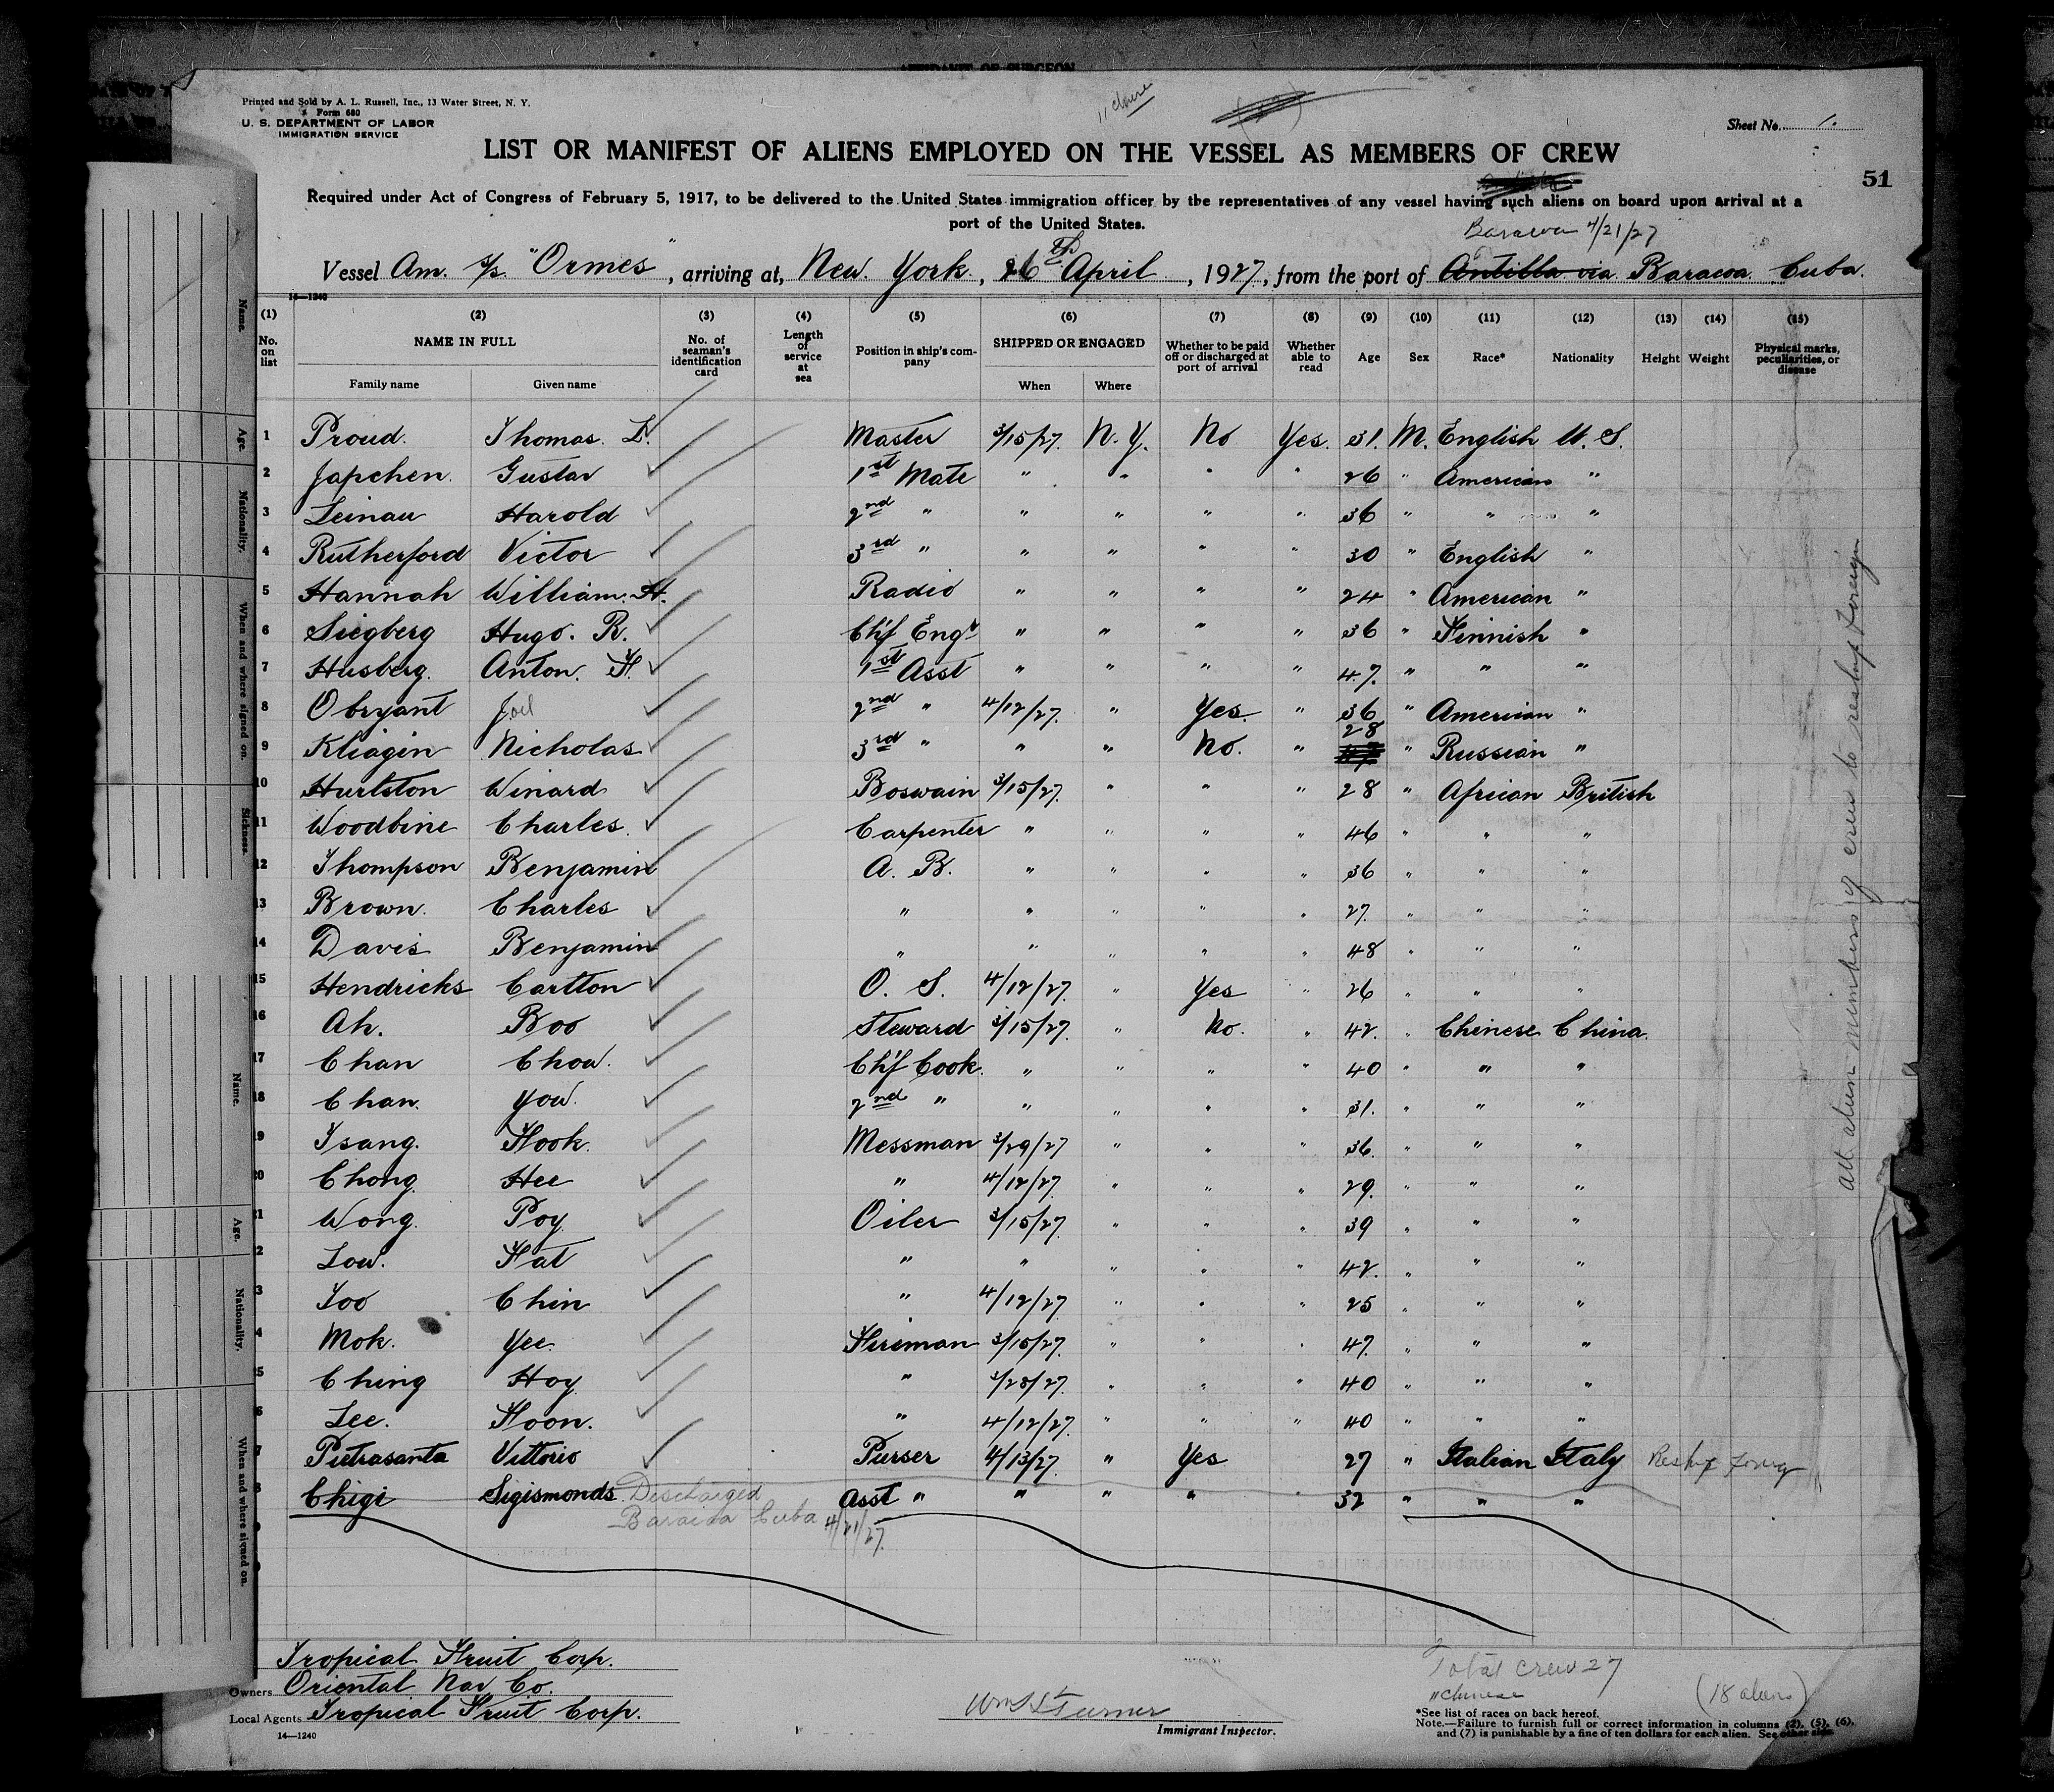 AFFIDAVIT OF SURGEON
Printed and Sold by A. L. Russell, Inc., 13 Water Street, N. Y.
Form 680
U. S. DEPARTMENT OF LABOR
IMMIGRATION SERVICE
11 chinese
Sheet No. 1.
LIST OR MANIFEST OF ALIENS EMPLOYED ON THE VESSEL AS MEMBERS OF CREW
51
Required under Act of Congress of February 5, 1917, to be delivered to the United States immigration officer by the representatives of any vessel having such aliens on board upon arrival at a
port of the United States.
Baracoa 4/21/27
Vessel Am. S/S "Ormes", arriving at, New York, 26th April, 1927, from the port of Antilla via Baracoa Cuba.
14—1240
(1) (2) (3) (4) (5) (6) (7) (8) (9) (10) (11) (12) (13) (14) (15)
No. on list NAME IN FULL Family name Given name No. of seaman's identification card Length of service at sea Position in ship's company SHIPPED OR ENGAGED When Where Whether to be paid off or discharged at port of arrival Whether able to read Age Sex Race* Nationality Height Weight Physical marks, peculiarities, or disease
1 Proud. Thomas. L. Master 3/15/27. N.Y. No Yes. 31. M. English U.S.
2 Japchen. Gustav 1st Mate " " " " 26 " American "
3 Leinau Harold 2nd " " " " " 36 " " "
4 Rutherford Victor 3rd " " " " " 30 " English "
5 Hannah William. H. Radio " " " " 24 " American "
6 Siegberg Hugo. R. Ch'f Engr " " " " 36 " Finnish "
7 Husberg. Anton. F. 1st Asst " " " " 47. " " "
8 Obryant Joel 2nd " 4/12/27. " Yes. " 36 " American "
9 Kliagin Nicholas 3rd " " " No. " 28 " Russian "
10 Hurlston Winard Boswain 3/15/27. " " " 28 " African British
11 Woodbine Charles. Carpenter " " " " 46 " " "
12 Thompson Benjamin A. B. " " " " 36 " " "
13 Brown. Charles " " " " " 27. " " "
14 Davis Benjamin " " " " " 48 " " "
15 Hendricks Carlton O. S. 4/12/27. " Yes " 26 " " "
16 Ah. Boo Steward 3/15/27. " No. " 42. " Chinese China.
17 Chan Chow. Ch'f Cook. " " " " 40 " " "
18 Chan. You. 2nd " " " " " 31. " " "
19 Tsang. Hook. Messman 3/29/27 " " " 36. " " "
20 Chong. Hee " 4/12/27. " " " 29. " " "
21 Wong. Poy. Oiler 3/15/27. " " " 39 " " "
2 Low. Fat " " " " " 42. " " "
3 Foo Chin " 4/12/27. " " " 25 " " "
4 Mok. Yee. Fireman 3/15/27. " " " 47. " " "
5 Ching Hoy " 3/28/27. " " " 40 " " "
6 Lee. Hoon. " 4/12/27. " " " 40 " " "
7 Pietrasanta Vittorio Purser 4/13/27. " Yes 27 " Italian Italy Reship foreig
8 Chigi Sigismonds. Discharged Asst " " " " " 32 " " "
Baracoa Cuba 4/21/27.
All alien members of crew to reship foreign
Name.
Age.
Nationality.
When and where signed on.
Sickness.
Name.
Age.
Nationality.
When and where signed on.
Tropical Fruit Corp.
Owners Oriental Nav Co.
Local Agents Tropical Fruit Corp.
14—1240
Turner
Immigrant Inspector.
Total Crew 27
" Chinese
(18 aliens)
*See list of races on back hereof.
Note.—Failure to furnish full or correct information in columns (2), (5), (6),
and (7) is punishable by a fine of ten dollars for each alien. See other side.